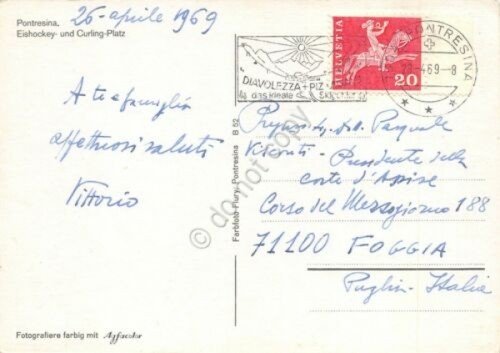 Pontresina,
Eishockey- und Curling-Platz
26-aprile 1969
A te e famiglia
affettuosi saluti
Vittorio
Fotografiere farbig mit Agfacolor
Farbfoto Flury, Pontresina B 52
DIAVOLEZZA + PIZ
das ideale
HELVETIA
20
PONTRESINA
-4.69.-8
Pasquale
Visconti - Presidente della
corte d'Assise
Corso del Mezzogiorno 188
71100 FOGGIA
Puglia - Italia
do not copy